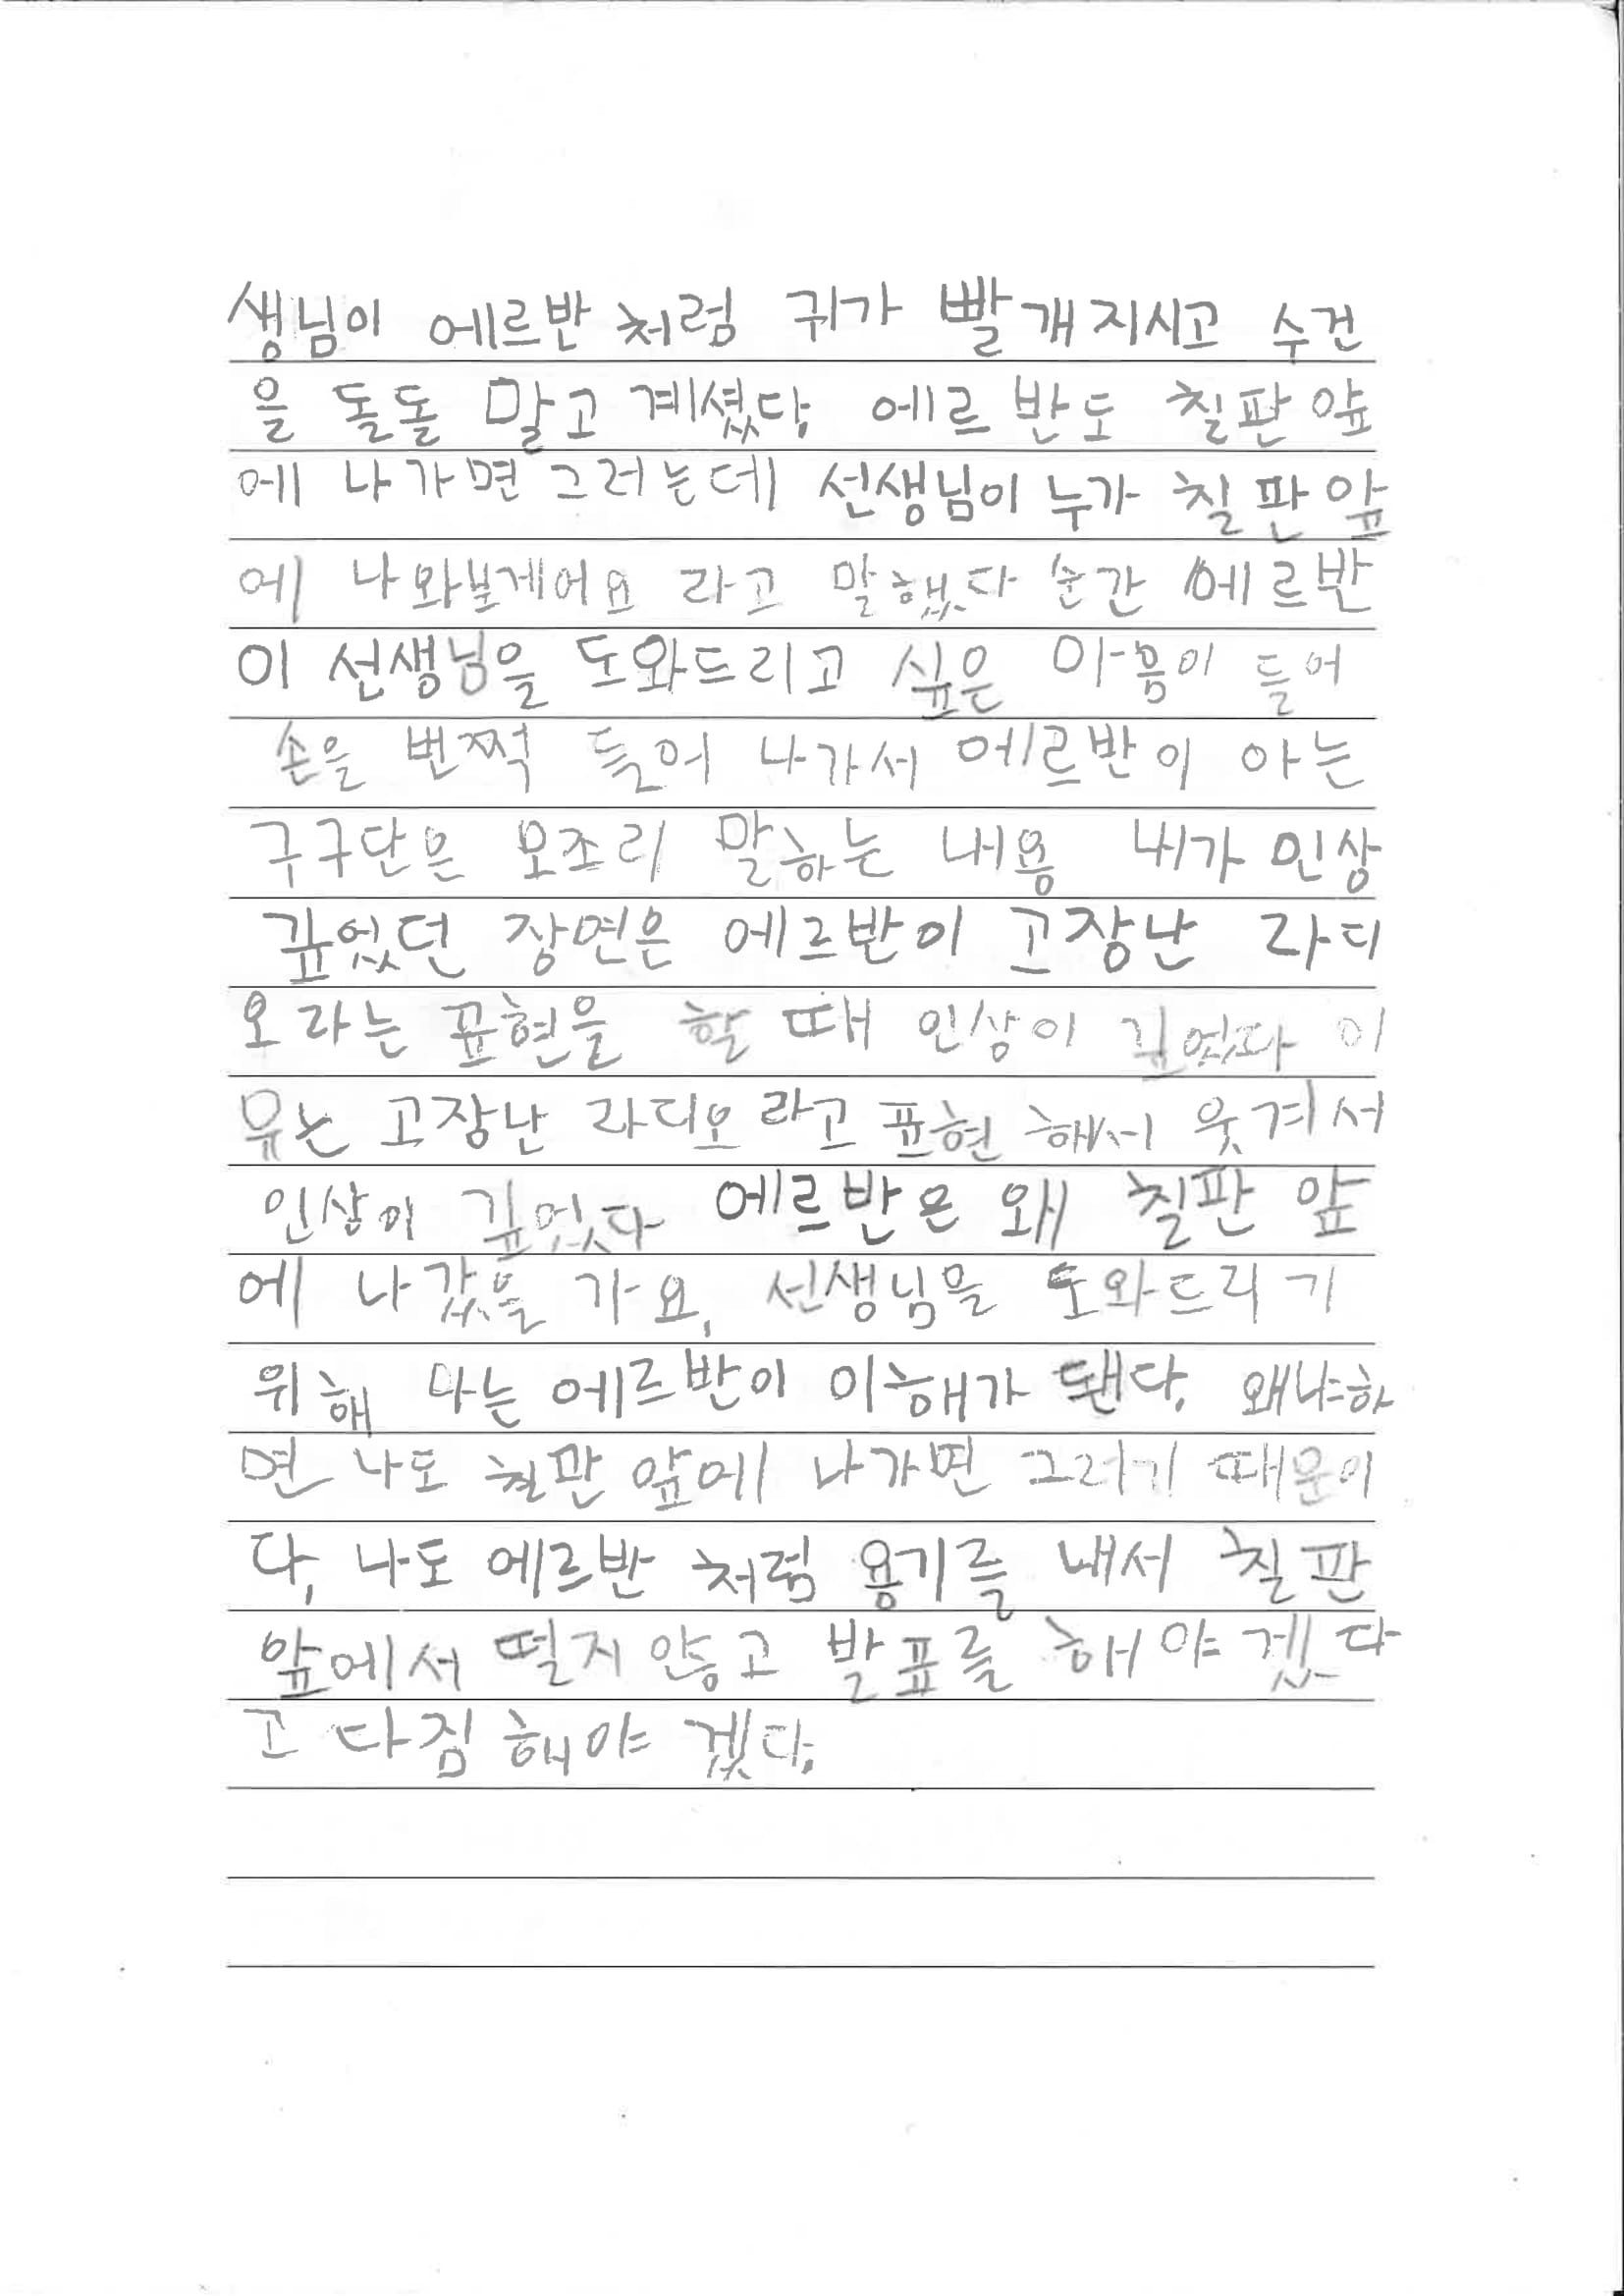 생님이 에르반 처럼 귀가 빨개지시고 수건
을 돌돌 말고 계셨다. 에르반도 칠판앞
에 나가면 그러는데 선생님이 누가 칠판앞
에 나와보게어요 라고 말했다 순간 에르반
이 선생님을 도와드리고 싶은 마음이 들어
손을 번쩍 들어 나가서 에르반이 아는
구구단은 모조리 말하는 내용 내가 인상
깊었던 장면은 에르반이 고장난 라디
오라는 표현을 할 때 인상이 깊었다 이
유는 고장난 라디오라고 표현 해서 웃겨서
인상이 깊었다 에르반은 왜 칠판 앞
에 나갔을 가요, 선생님을 도와드리기
위해 나는 에르반이 이해가 됀다. 왜냐하
면 나도 칠판 앞에 나가면 그러기 때문이
다, 나도 에르반 처럼 용기를 내서 칠판
앞에서 떨지 안흥고 발표를 해야겠다
고 다짐해야 겠다.